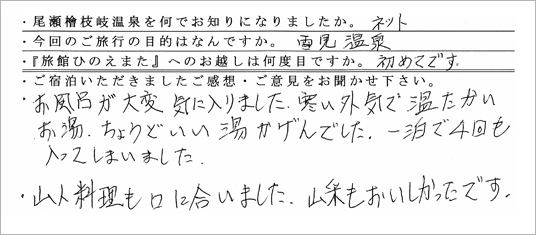 ・尾瀬檜枝岐温泉を何でお知りになりましたか。 ネット
・今回のご旅行の目的はなんですか。 雪見温泉
・『旅館ひのえまた』へのお越しは何度目ですか。 初めてです。
・ご宿泊いただきましたご感想・ご意見をお聞かせ下さい。
・お風呂が大変気に入りました。寒い外気で温たかい
お湯、ちょうどいい湯かげんでした。一泊で4回も
入ってしまいました。
・山人料理も口に合いました。山菜もおいしかったです。